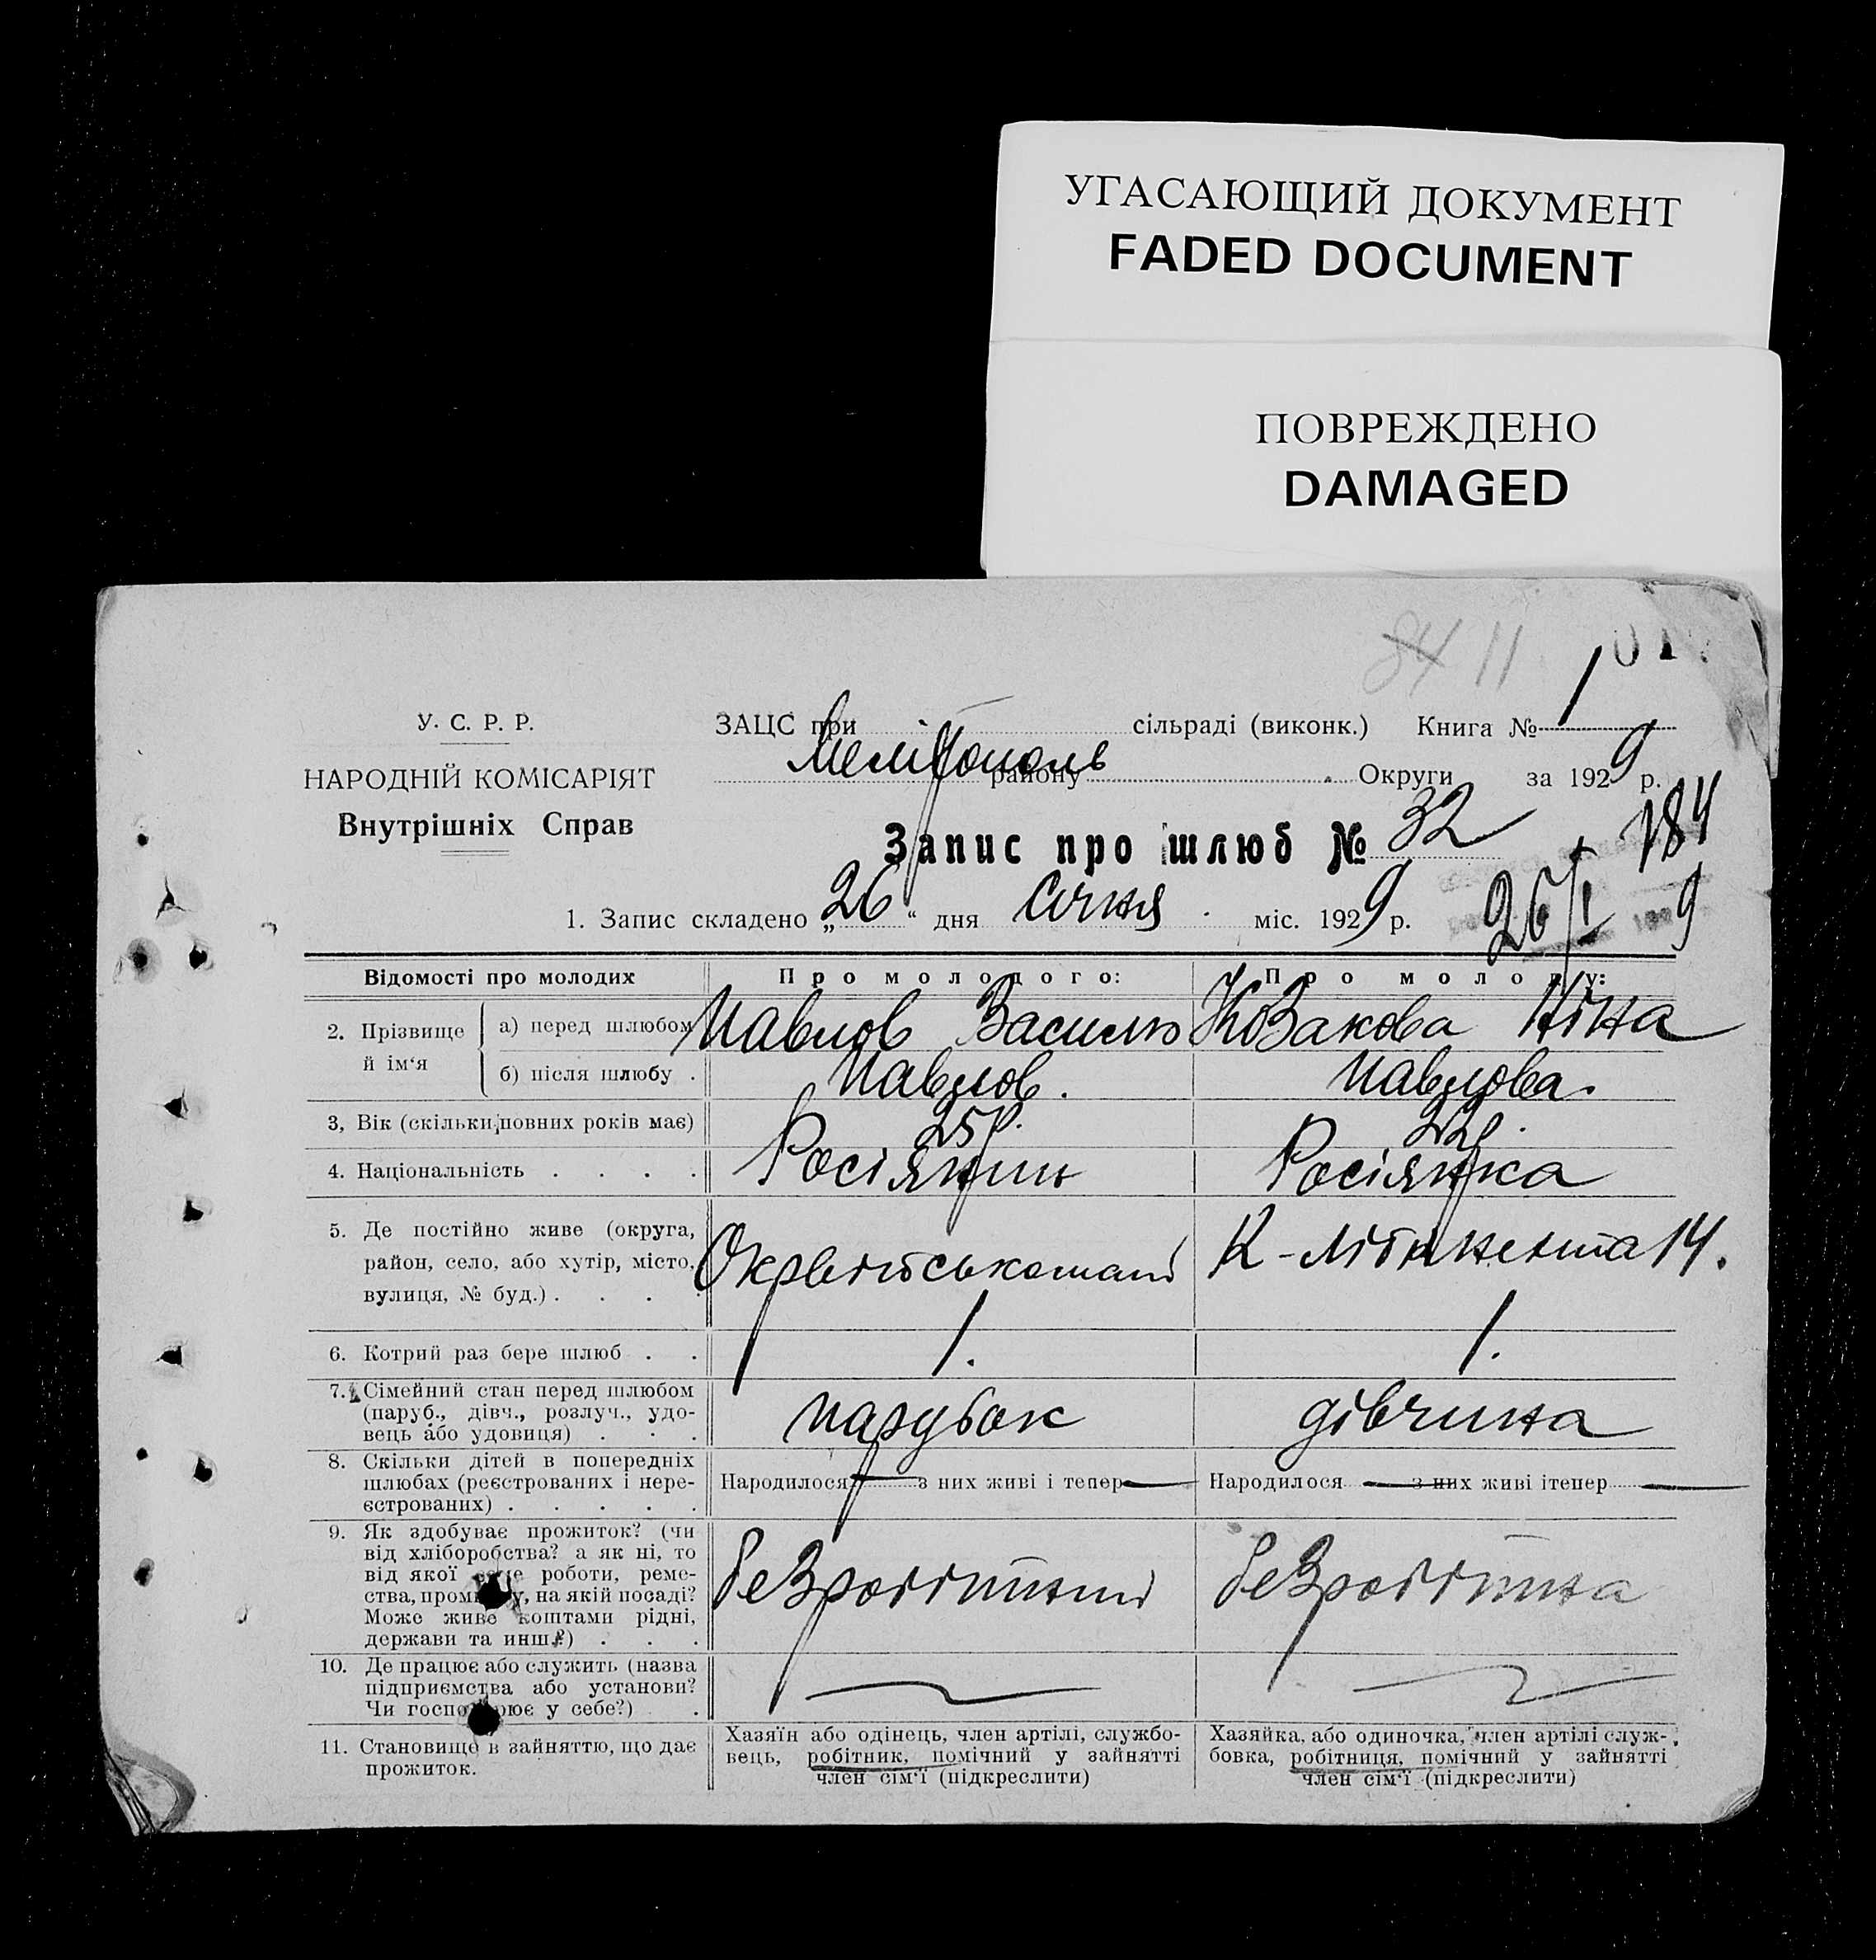 УГАСАЮЩИЙ ДОКУМЕНТ
FADED DOCUMENT
ПОВРЕЖДЕНО
DAMAGED
84 11
У. С. Р. Р.
НАРОДНІЙ КОМІСАРІЯТ
Внутрішніх Справ
ЗАЦС при сільраді (виконк.) Книга № 1
Мелітополь району Округи за 1929 р.
Запис про шлюб № 32
184
1. Запис складено „26“ дня січня міс. 1929 р.
26/I 9
Відомості про молодих Про молодого: Про молоду:
2. Прізвище й ім‘я а) перед шлюбом Павлов Василь Козакова Ніна
б) після шлюбу . Павлов. Павлова.
3, Вік (скільки повних років має) 25 р. 22 р.
4. Національність . . . . Росіянин Росіянка
5. Де постійно живе (округа,
район, село, або хутір, місто,
вулиця, № буд.) . . . .
К- 14.
6. Котрий раз бере шлюб . . 1. 1.
7. Сімейний стан перед шлюбом
(паруб., дівч., розлуч., удо-
вець або удовиця) . . .
парубок дівчина
8. Скільки дітей в попередніх
шлюбах (реєстрованих і нере-
єстрованих) . . . . .
Народилося — з них живі і тепер — Народилося — з них живі ітепер —
9. Як здобуває прожиток? (чи
від хліборобства? а як ні, то
від якої роботи, реме-
ства, промислу, на якій посаді?
Може живе коштами рідні,
держави та инш.?) . . .
безробітний безробітна
10. Де працює або служить (назва
підприємства або установи?
Чи господарює у себе?) .
11. Становище в зайняттю, що дає
прожиток.
Хазяїн або одінець, член артілі, службо-
вець, робітник, помічний у зайнятті
член сім‘ї (підкреслити)
Хазяйка, або одиночка, член артілі служ-
бовка, робітниця, помічний у зайнятті
член сім‘ї (підкреслити)